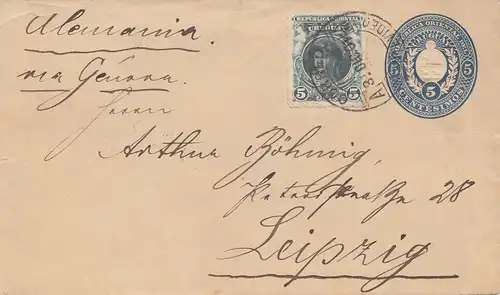 Alemania.
via Génova.
REPUBLICA ORIENTAL
URUGUAY
5 5
REPUBLICA ORIENTAL
5 5
5
CENTESIMOS
Herrn
Arthur Böhmig,
Petersstraße 28
Leipzig